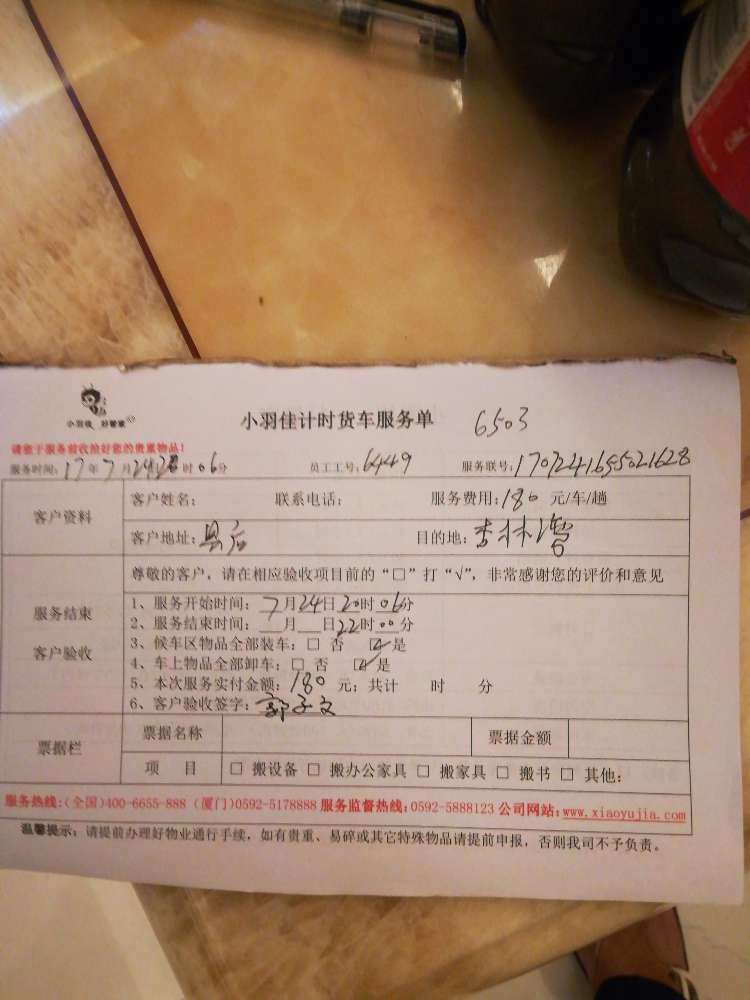 小羽佳 好管家
小羽佳计时货车服务单 6503
请您于服务前收拾好您的贵重物品!
服务时间: 17年7月24 20时06分 员工工号: 6449 服务联号: 1707241655021628
客户资料
客户姓名: 联系电话: 服务费用: 180 元/车/趟
客户地址: 县后 目的地: 杏林湾
服务结束
客户验收
尊敬的客户，请在相应验收项目前的“□”打“√”，非常感谢您的评价和意见
1、服务开始时间: 7月24日20时06分
2、服务结束时间: __月__日22时00分
3、候车区物品全部装车: □ 否 ☑ 是
4、车上物品全部卸车: □ 否 ☑ 是
5、本次服务实付金额: 180 元; 共计 时 分
6、客户验收签字: 郭子文
票据栏
票据名称 票据金额
项 目 □ 搬设备 □ 搬办公家具 □ 搬家具 □ 搬书 □ 其他:
服务热线:(全国)400-6655-888 (厦门)0592-5178888 服务监督热线:0592-5888123 公司网站:www.xiaoyujia.com
温馨提示: 请提前办理好物业通行手续，如有贵重、易碎或其它特殊物品请提前申报，否则我司不予负责。